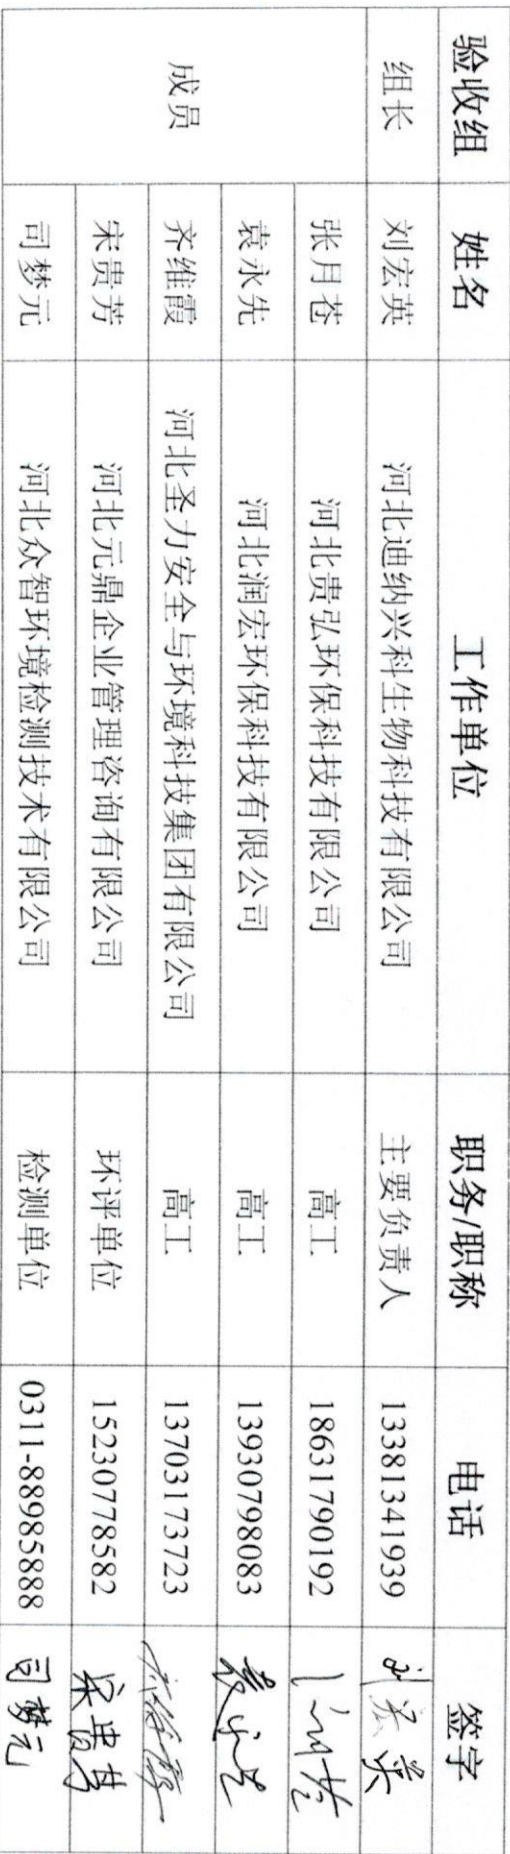 验收组 姓名 工作单位 职务/职称 电话 签字
组长 刘宏英 河北迪纳兴科生物科技有限公司 主要负责人 13381341939 刘宏英
成员 张月苍 河北贵弘环保科技有限公司 高工 18631790192
袁永先 河北润宏环保科技有限公司 高工 13930798083 袁永先
齐维霞 河北圣力安全与环境科技集团有限公司 高工 13703173723 齐维霞
宋贵芳 河北元鼎企业管理咨询有限公司 环评单位 15230778582 宋贵芳
司梦元 河北众智环境检测技术有限公司 检测单位 0311-88985888 司梦元